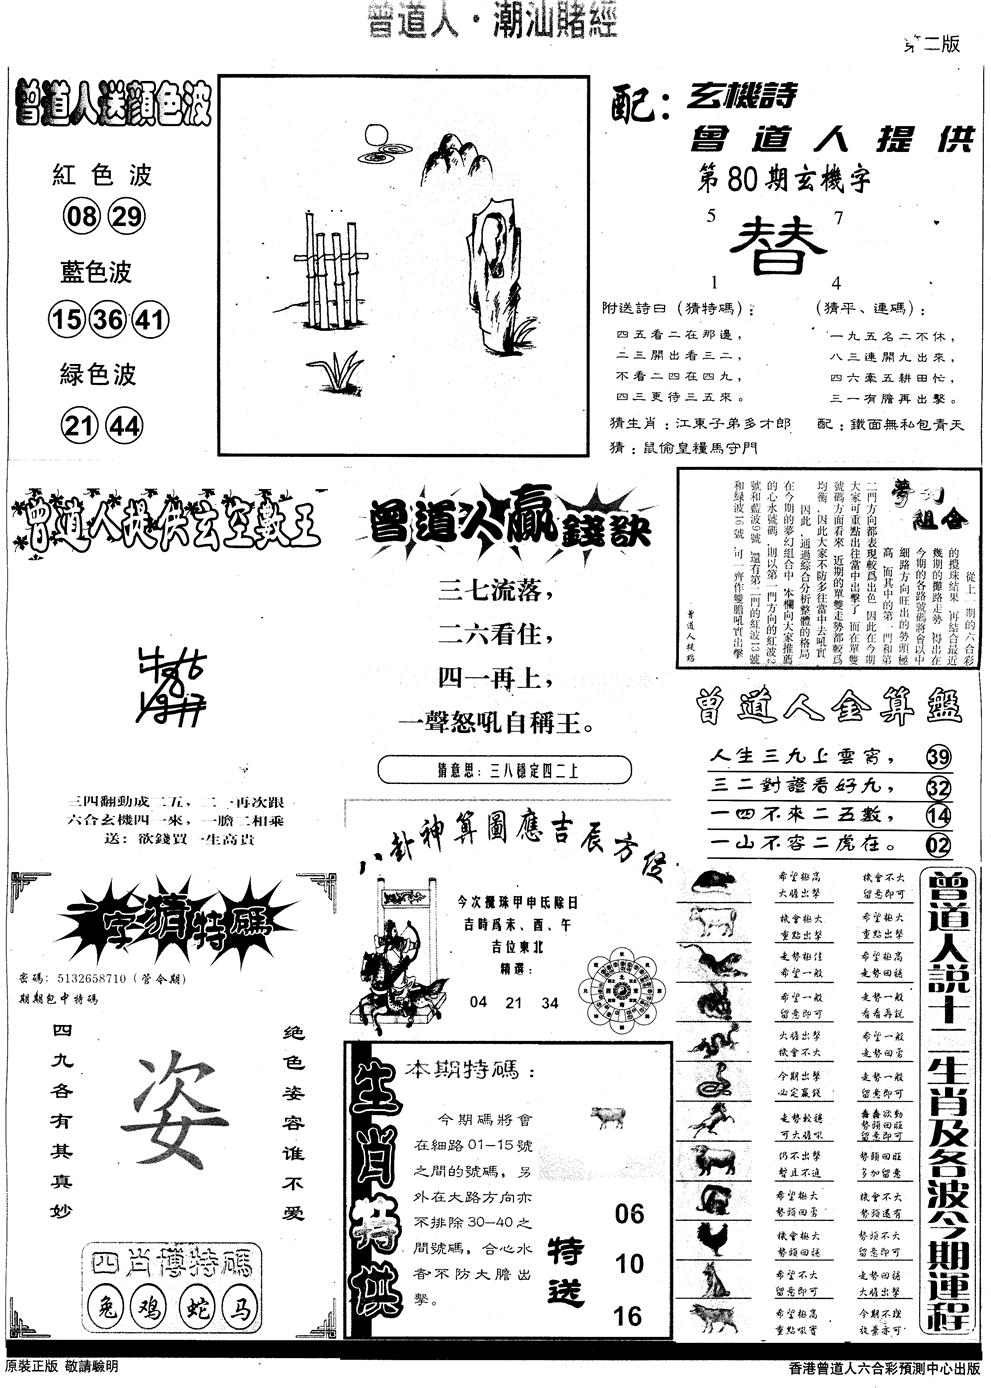 曾道人·潮汕賭經
第二版
曾道人送顏色波
紅色波
08 29
藍色波
15 36 41
緑色波
21 44
配：玄機詩
曾道人提供
第80期玄機字
5 7
替
1 4
附送詩白（猜特碼）：
四五看二在那邊，
二三開出看三二，
不看二四在四九，
四三更待三五來。
（猜平、連碼）：
一九五名二不休，
八三連開九出來，
四六牽五耕田忙，
三一有膽再出擊。
猜生肖：江東子弟多才郎
配：鐵面無私包青天
猜：鼠偷皇糧馬守門
曾道人提供玄空數王
三四翻動成二五，二一再次跟
六合玄機四一來，一膽二相乘
送：欲錢買一生高貴
曾道人贏錢訣
三七流落，
二六看住，
四一再上，
一聲怒吼自稱王。
猜意思：三八穩定四二上
夢幻
組合
從上一期的六合彩
的攪珠結果，再結合最近
幾期的攤路走勢，得出在
今期的各路號碼將會以中
細路方向旺出的勢頭極
高，而其中的第一門和第
二門方向都表現較爲出色，因此在今期
大家可重點出往當中出擊了，而在單雙
號碼方面看來，近期的單雙走勢都較爲
均衡，因此大家不防多往當中去吼實。
因此，通過綜合分析整體的格局，
在今期的夢幻組合中，本欄向大家推薦
的心水號碼，則以第一門方向的紅波2
號和藍波9號，還有第二門的紅波13號
和緑波16號，可一齊作雙膽吼實出擊。
曾道人提點
曾道人金算盤
人生三九上雲宵， 39
三二對證看好九， 32
一四不來二五數， 14
一山不容二虎在。 02
八卦神算圖應吉辰方位
今次攪珠甲申氏除日
吉時爲未、酉、午
吉位東北
精選：
04 21 34
一字猜特碼
密碼：5132658710（管令期）
期期包中特碼
四九各有其真妙
姿
绝色姿容谁不爱
四肖博特碼
兔 鸡 蛇 马
生肖特供
本期特碼：
今期碼將會
在細路01—15號
之間的號碼，另
外在大路方向亦
不排除30—40之
間號碼，合心水
者不防大膽出
擊。
特送
06
10
16
曾道人説十二生肖及各波今期運程
希望極高 機會不大
大膽出擊 留意即可
機會極大 希望極大
重點出擊 重點出擊
走勢極佳 希望極高
希望一般 走勢回穩
希望一般 走勢一般
留意即可 看看再説
大膽出擊 希望一般
機會不大 走勢回勇
今期出擊 走勢一般
必定贏錢 留意即可
走勢較穩 蠢蠢欲動
可大膽吼 勢頭回旺
留意即可
仍不出擊 勢頭回旺
暫且不追 多加留意
希望極大 機會不大
勢頭回勇 勢頭還有
機會極大 勢頭不大
勢頭回穩 留意即可
希望不大 走勢回穩
留意即可 大膽出擊
希望極高 今期不理
重點吼實 放棄亦可
原裝正版 敬請驗明
香港曾道人六合彩預測中心出版